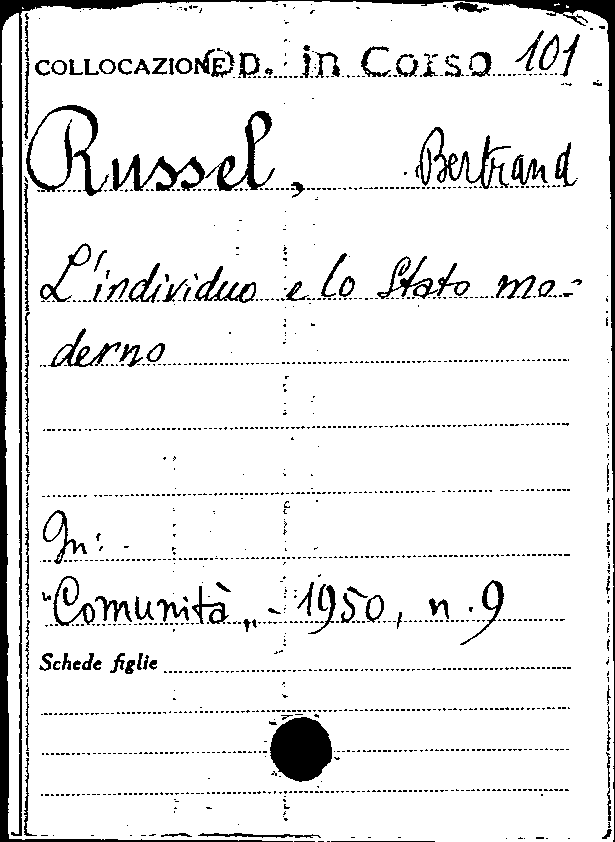 COLLOCAZIONE Op. in Corso 101
Russel, Bertrand
L'individuo e lo Stato mo-
derno
In:
"Comunità„ - 1950, n. 9
Schede figlie